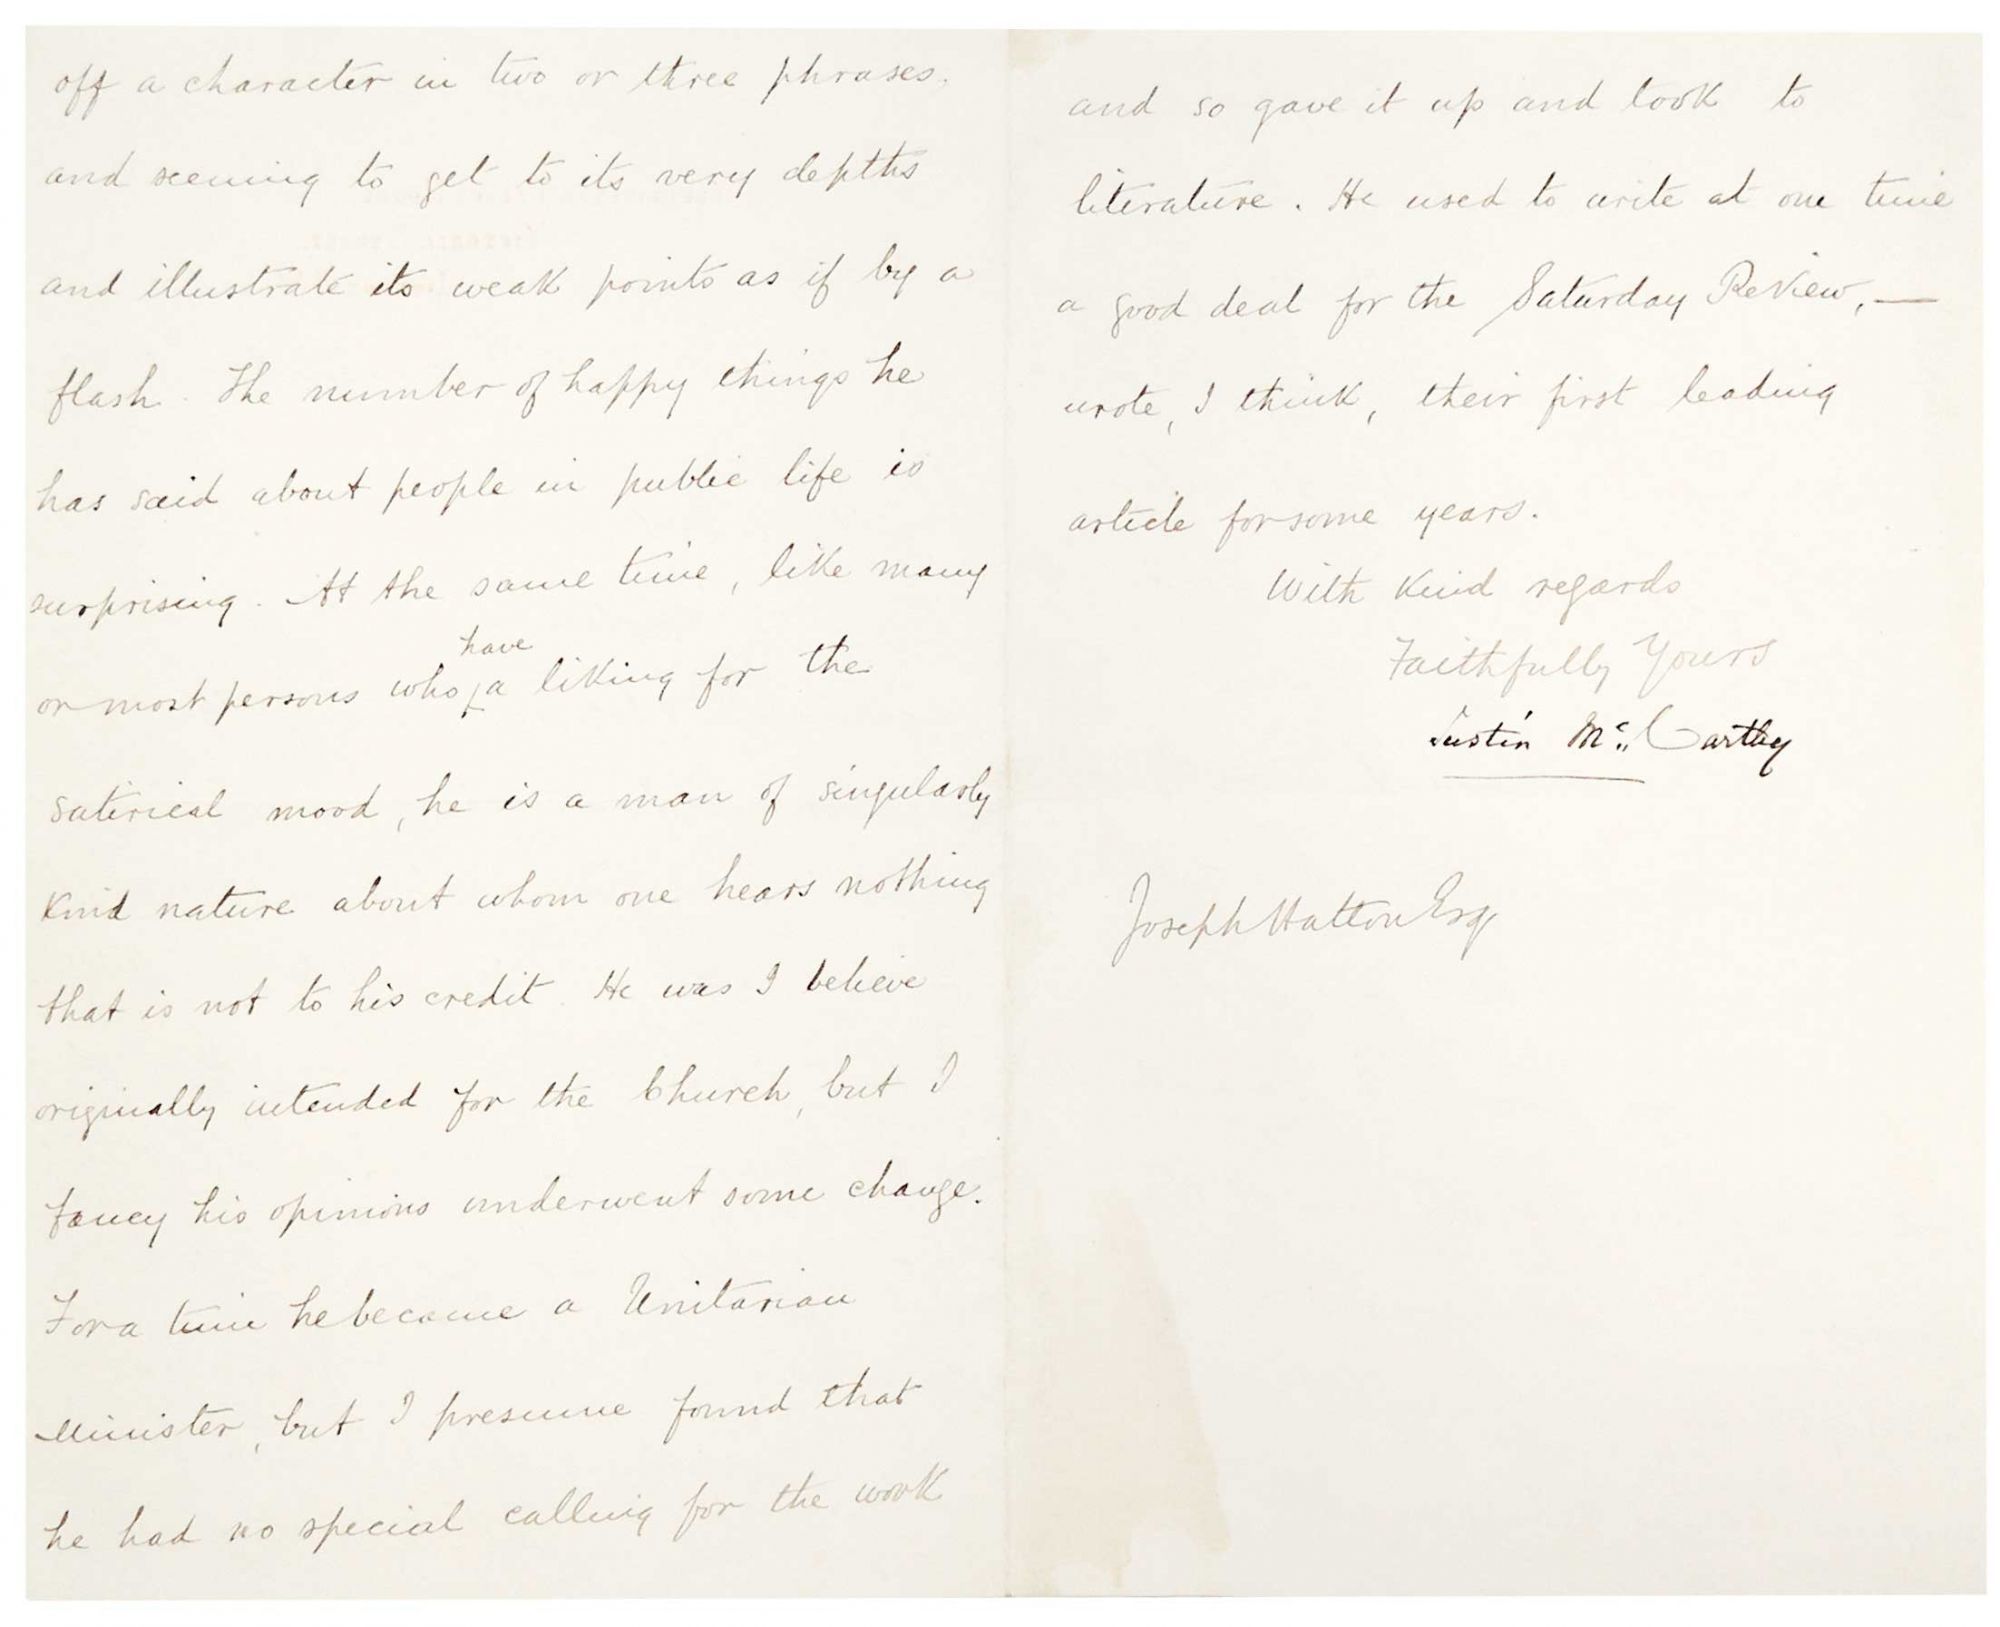 off a character in two or three phrases.
and seeming to get to its very depths
and illustrate its weak points as if by a
flash. The number of happy things he
has said about people in public life is
surprising. At the same time, like many
have
or most persons who a liking for the
satirical mood, he is a man of singularly
kind nature about whom one hears nothing
that is not to his credit. He was I believe
originally intended for the Church, but I
fancy his opinions underwent some change.
For a time he became a Unitarian
Minister, but I presume found that
he had no special calling for the work
and so gave it up and took to
literature. He used to write at one time
a good deal for the Saturday Review, —
wrote, I think, their first leading
article for some years.
With kind regards
Faithfully Yours
Justin McCarthy
Joseph Hatton Esq